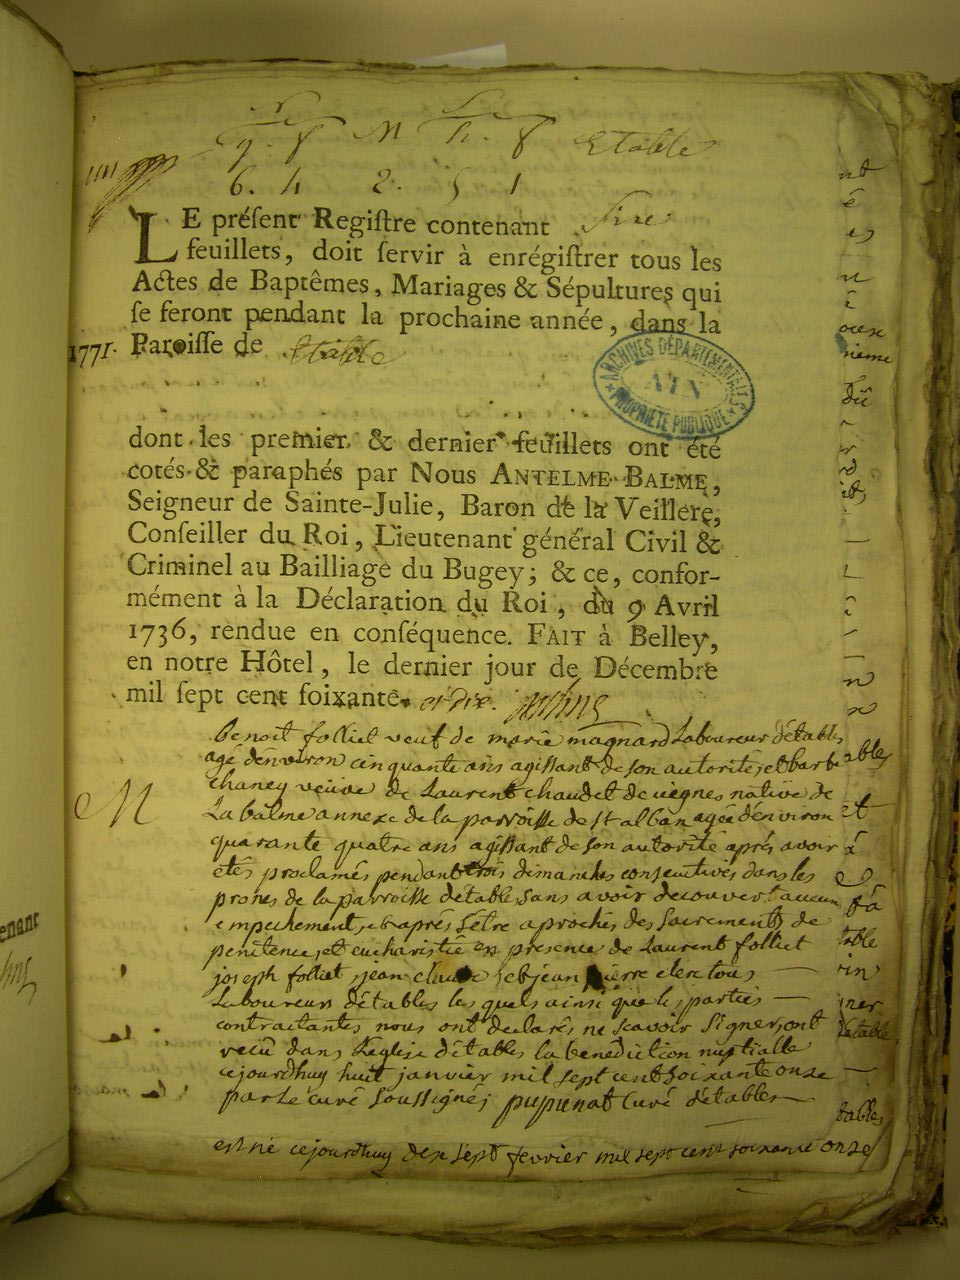 Etable
6. 4 2. 5 1
LE préſent Regiſtre contenant
feuillets, doit ſervir à enrégiſtrer tous les
Actes de Baptêmes, Mariages & Sépultures qui
ſe feront pendant la prochaine année, dans la
1771. Paroiſſe de Etable
ARCHIVES DÉPARTEMENTALES
AIN
PROPRIÉTÉ PUBLIQUE
dont les premier & dernier feuillets ont été
cotés & paraphés par Nous ANTELME BALME,
Seigneur de Sainte-Julie, Baron de la Veillere,
Conſeiller du Roi, Lieutenant général Civil &
Criminel au Bailliage du Bugey; & ce, confor-
mément à la Déclaration du Roi, du 9 Avril
1736, rendue en conſéquence. FAIT à Belley,
en notre Hôtel, le dernier jour de Décembre
mil ſept cent ſoixante et dix.
benoit folliet veuf de marie magnard Laboureur détables
agé denviron cinquante ans agissant de son autorité, et barbe
chaney veuve de Laurent chaudet de native de
M La balme annexe de la parroisse de st alban agée denviron
quarante quatre ans agissant de son autorité aprés avoir
étés proclamés pendant trois dimanches consecutives dans les
prones de la parroisse détables, sans avoir decouvert aucun
empechement, et aprés sétre aprochés des sacrements de
penitence, et eucharistie en presence de Laurent folliet
joseph folliet jean claude et jean pierre clerc tous
Laboureurs détables les quels ainsi que les parties
contractantes nous ont declarés ne scavoir signer, ont
recû dans Léglise détables la benediction nuptialle
cejourdhuy huit janvier mil sept cent soixante onze
par Le curé soussigné; pupunat Curé détables
est né cejourdhuy dix sept fevrier mil sept cent soixante onze
enant